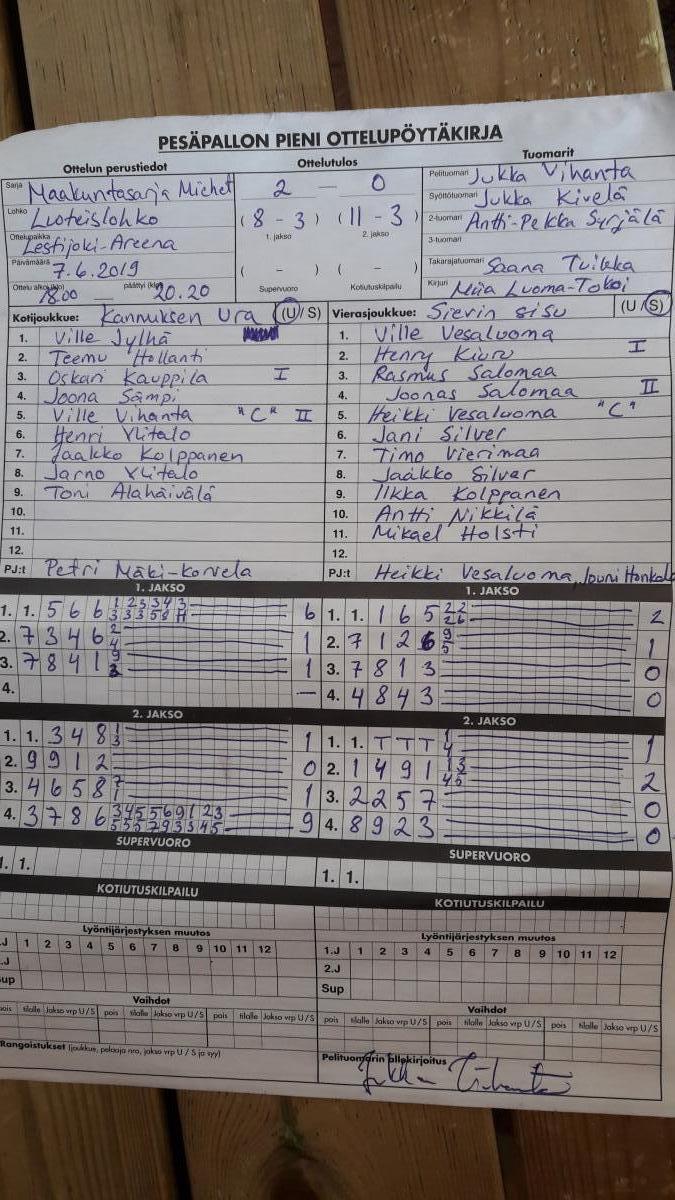 PESÄPALLON PIENI OTTELUPÖYTÄKIRJA
Ottelun perustiedot
Sarja Maakuntasarja Miehet
Lohko Luoteislohko
Ottelupaikka Lestijoki-Areena
Päivämäärä 7.6.2019
Ottelu alkoi (klo) 18.00 päättyi (klo) 20.20
Ottelutulos
2 — 0
(8 - 3) (11 - 3)
1. jakso 2. jakso
( - ) ( - )
Supervuoro Kotiutuskilpailu
Tuomarit
Pelituomari Jukka Vihanta
Syöttötuomari Jukka Kivelä
2-tuomari Antti-Pekka Syrjälä
3-tuomari
Takarajatuomari Saana Tuikka
Kirjuri Miia Luoma-Tokoi
Kotijoukkue: Kannuksen Ura (U/S)
1. Ville Jylhä
2. Teemu Hollanti
3. Oskari Kauppila I
4. Joona Sämpi
5. Ville Vihanta "C" II
6. Henri Ylitalo
7. Jaakko Kolppanen
8. Jarno Ylitalo
9. Toni Alahäivälä
10.
11.
12.
PJ:t Petri Mäki-Korvela
Vierasjoukkue: Sievin Sisu (U/S)
1. Ville Vesaluoma
2. Henry Kiuru I
3. Rasmus Salomaa
4. Joonas Salomaa II
5. Heikki Vesaluoma "C"
6. Jani Silver
7. Timo Vierimaa
8. Jaakko Silver
9. Ilkka Kolppanen
10. Antti Nikkilä
11. Mikael Holsti
12.
PJ:t Heikki Vesaluoma, Jouni Honkala
1. JAKSO
1. 1. 5 6 6 6
2. 7 3 4 6 2 4 1
3. 7 8 4 1 9 1
4. —
1. JAKSO
1. 1. 1 6 5 22 26 2
2. 7 1 2 6 9 5 1
3. 7 8 1 3 0
4. 4 8 4 3 0
2. JAKSO
1. 1. 3 4 8 1 3 1
2. 9 9 1 2 0
3. 4 6 5 8 7 1 1
4. 3 7 8 6 9
2. JAKSO
1. 1. T T T 1 4 1
2. 1 4 9 1 13 45 2
3. 2 2 5 7 0
4. 8 9 2 3 0
SUPERVUORO
1. 1.
SUPERVUORO
1. 1.
KOTIUTUSKILPAILU
KOTIUTUSKILPAILU
Lyöntijärjestyksen muutos
.J 1 2 3 4 5 6 7 8 9 10 11 12
.J
up
Lyöntijärjestyksen muutos
1.J 1 2 3 4 5 6 7 8 9 10 11 12
2.J
Sup
Vaihdot
pois tilalle Jakso vrp U/S pois tilalle Jakso vrp U/S pois tilalle Jakso vrp U/S
Vaihdot
pois tilalle Jakso vrp U/S pois tilalle Jakso vrp U/S pois tilalle Jakso vrp U/S
Rangaistukset (joukkue, pelaaja nro, jakso vrp U / S ja syy)
Pelituomarin allekirjoitus
Jukka Vihanta